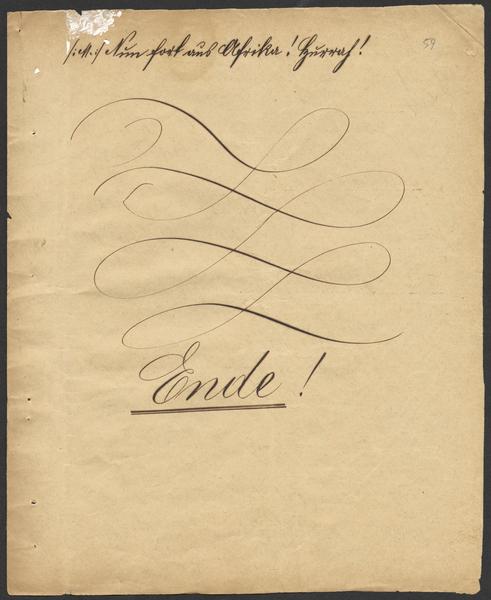 /: M :/ Nun fort aus Afrika! Hurrah!
59
Ende!